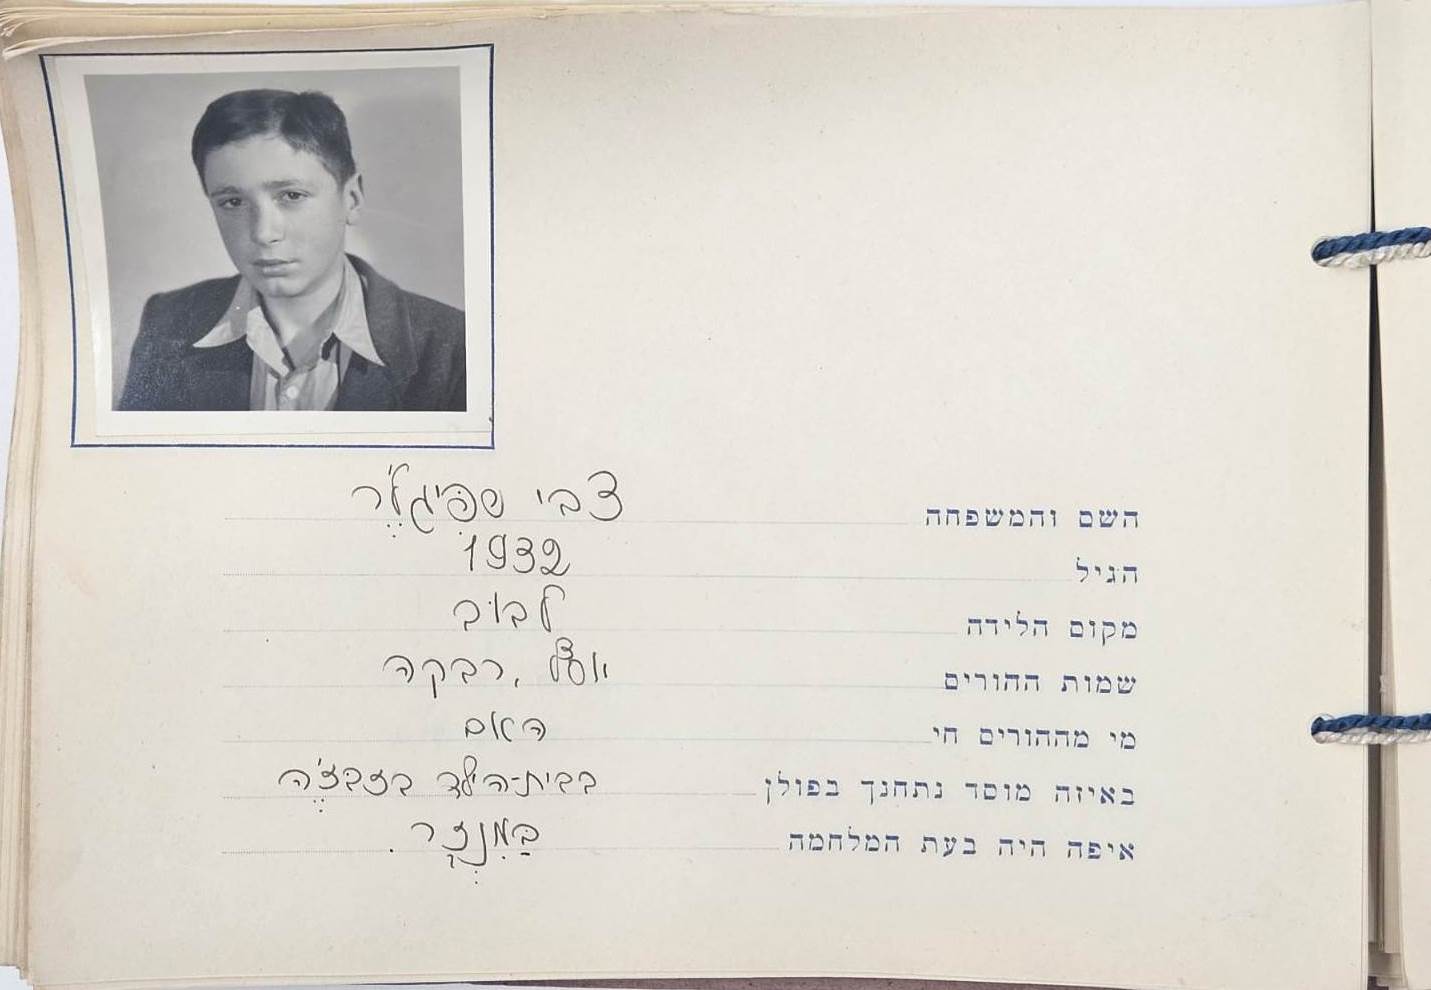 השם והמשפחה צבי שפיגלֶר
הגיל 1932
מקום הלידה לבוב
שמות ההורים רבקה,
מי מההורים חי האם
באיזה מוסד נתחנך בפולן בבית-הילד בזבצ'ֶה
איפה היה בעת המלחמה בַּמִנְזָר.